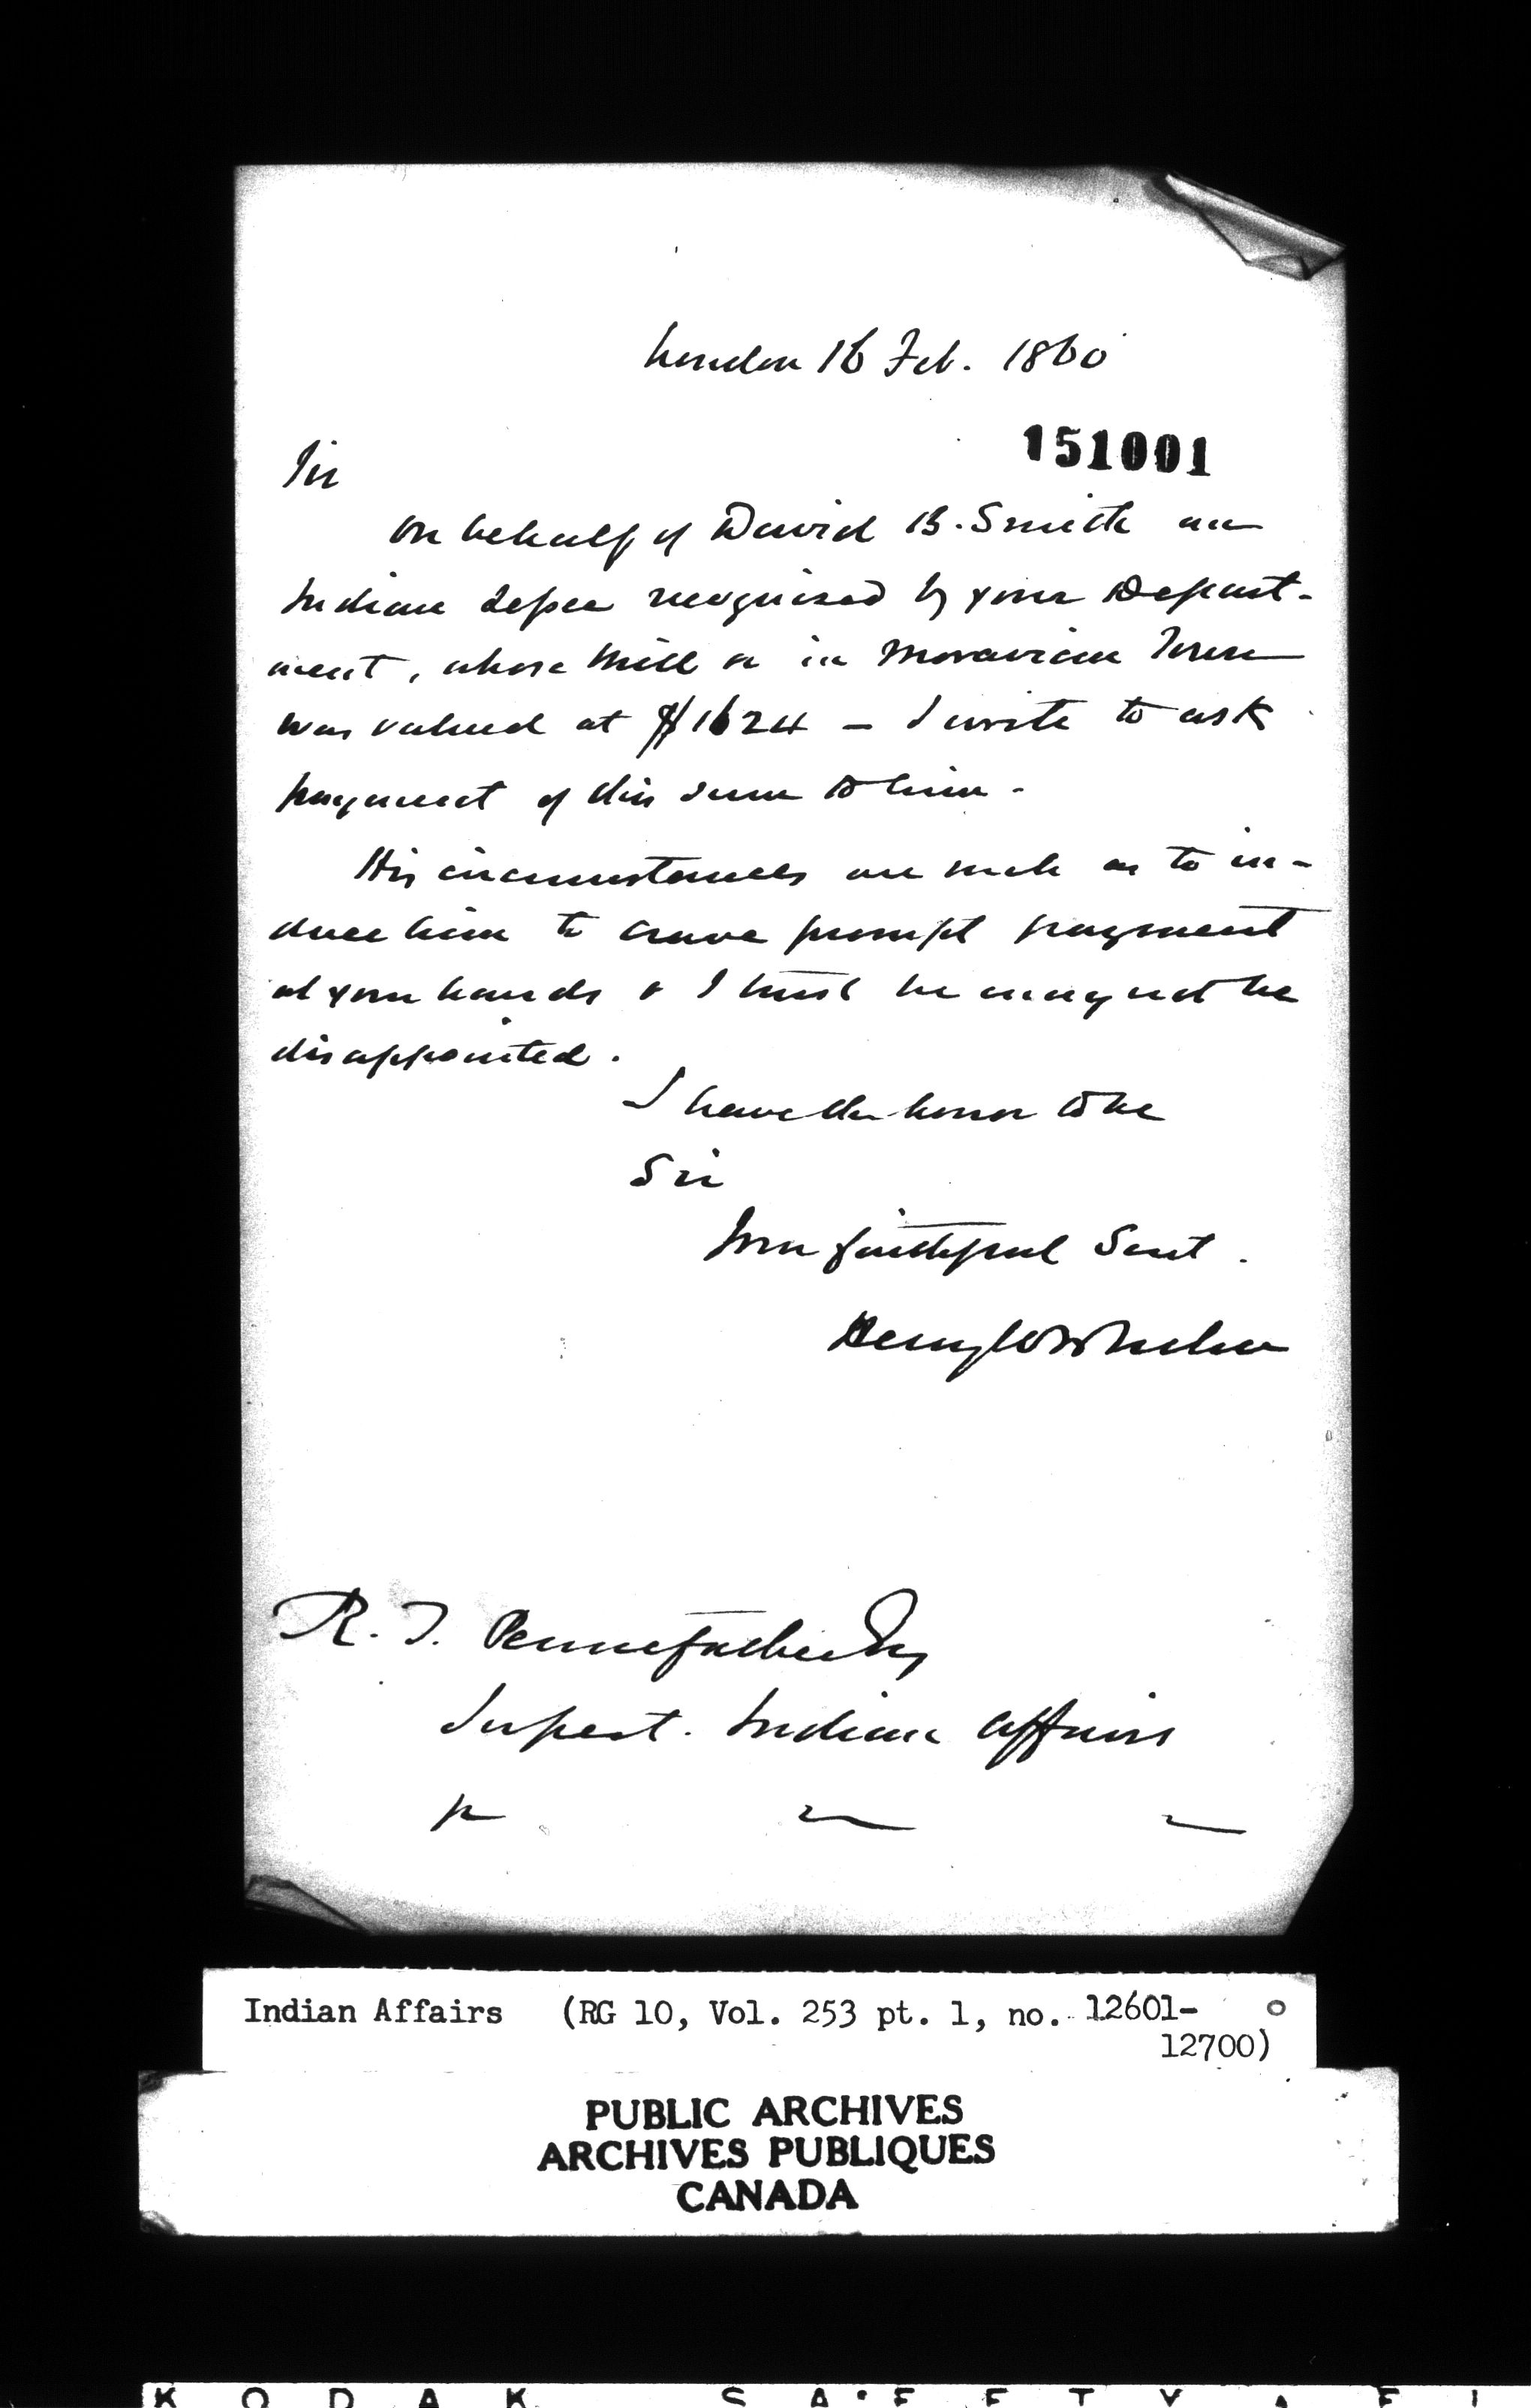 London 16 Feb. 1860
151001
Sir
On behalf of David B. Smith an
Indian Lessee recognised by your Depart-
ment, whose Mill in Moravian Town
was valued at $1624 - I write to ask
payment of this sum to him.
His circumstances are such as to in-
duce him to crave prompt payment
at your hands & I trust he may not be
disappointed.
I have the honor to be
Sir
Your faithful Servt.
Henry
R. T. Pennefather Esq
Supert. Indian Affairs
Indian Affairs (RG 10, Vol. 253 pt. 1, no. 12601-
12700)
PUBLIC ARCHIVES
ARCHIVES PUBLIQUES
CANADA
KODAK SAFETY